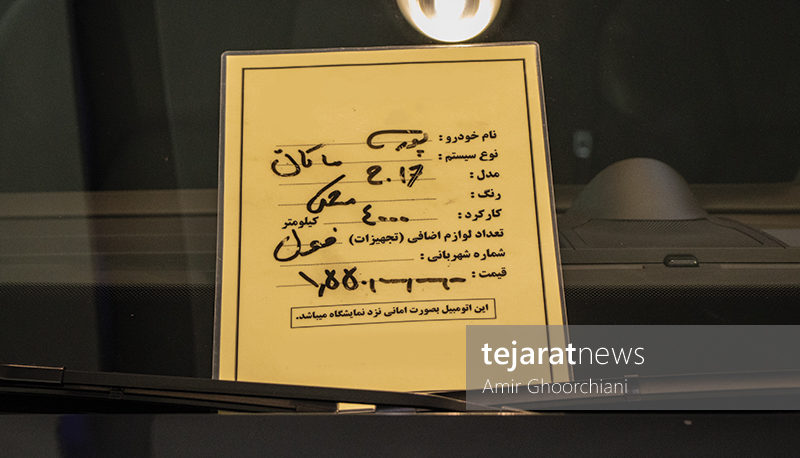 نام خودرو : پورشه
نوع سیستم : ماکان
مدل : 2017
رنگ : مشکی
کارکرد : ۴۰۰۰ کیلومتر
تعداد لوازم اضافی (تجهیزات) فول
شماره شهربانی :
قیمت :
این اتومبیل بصورت امانی نزد نمایشگاه میباشد.
tejaratnews
Amir Ghoorchiani